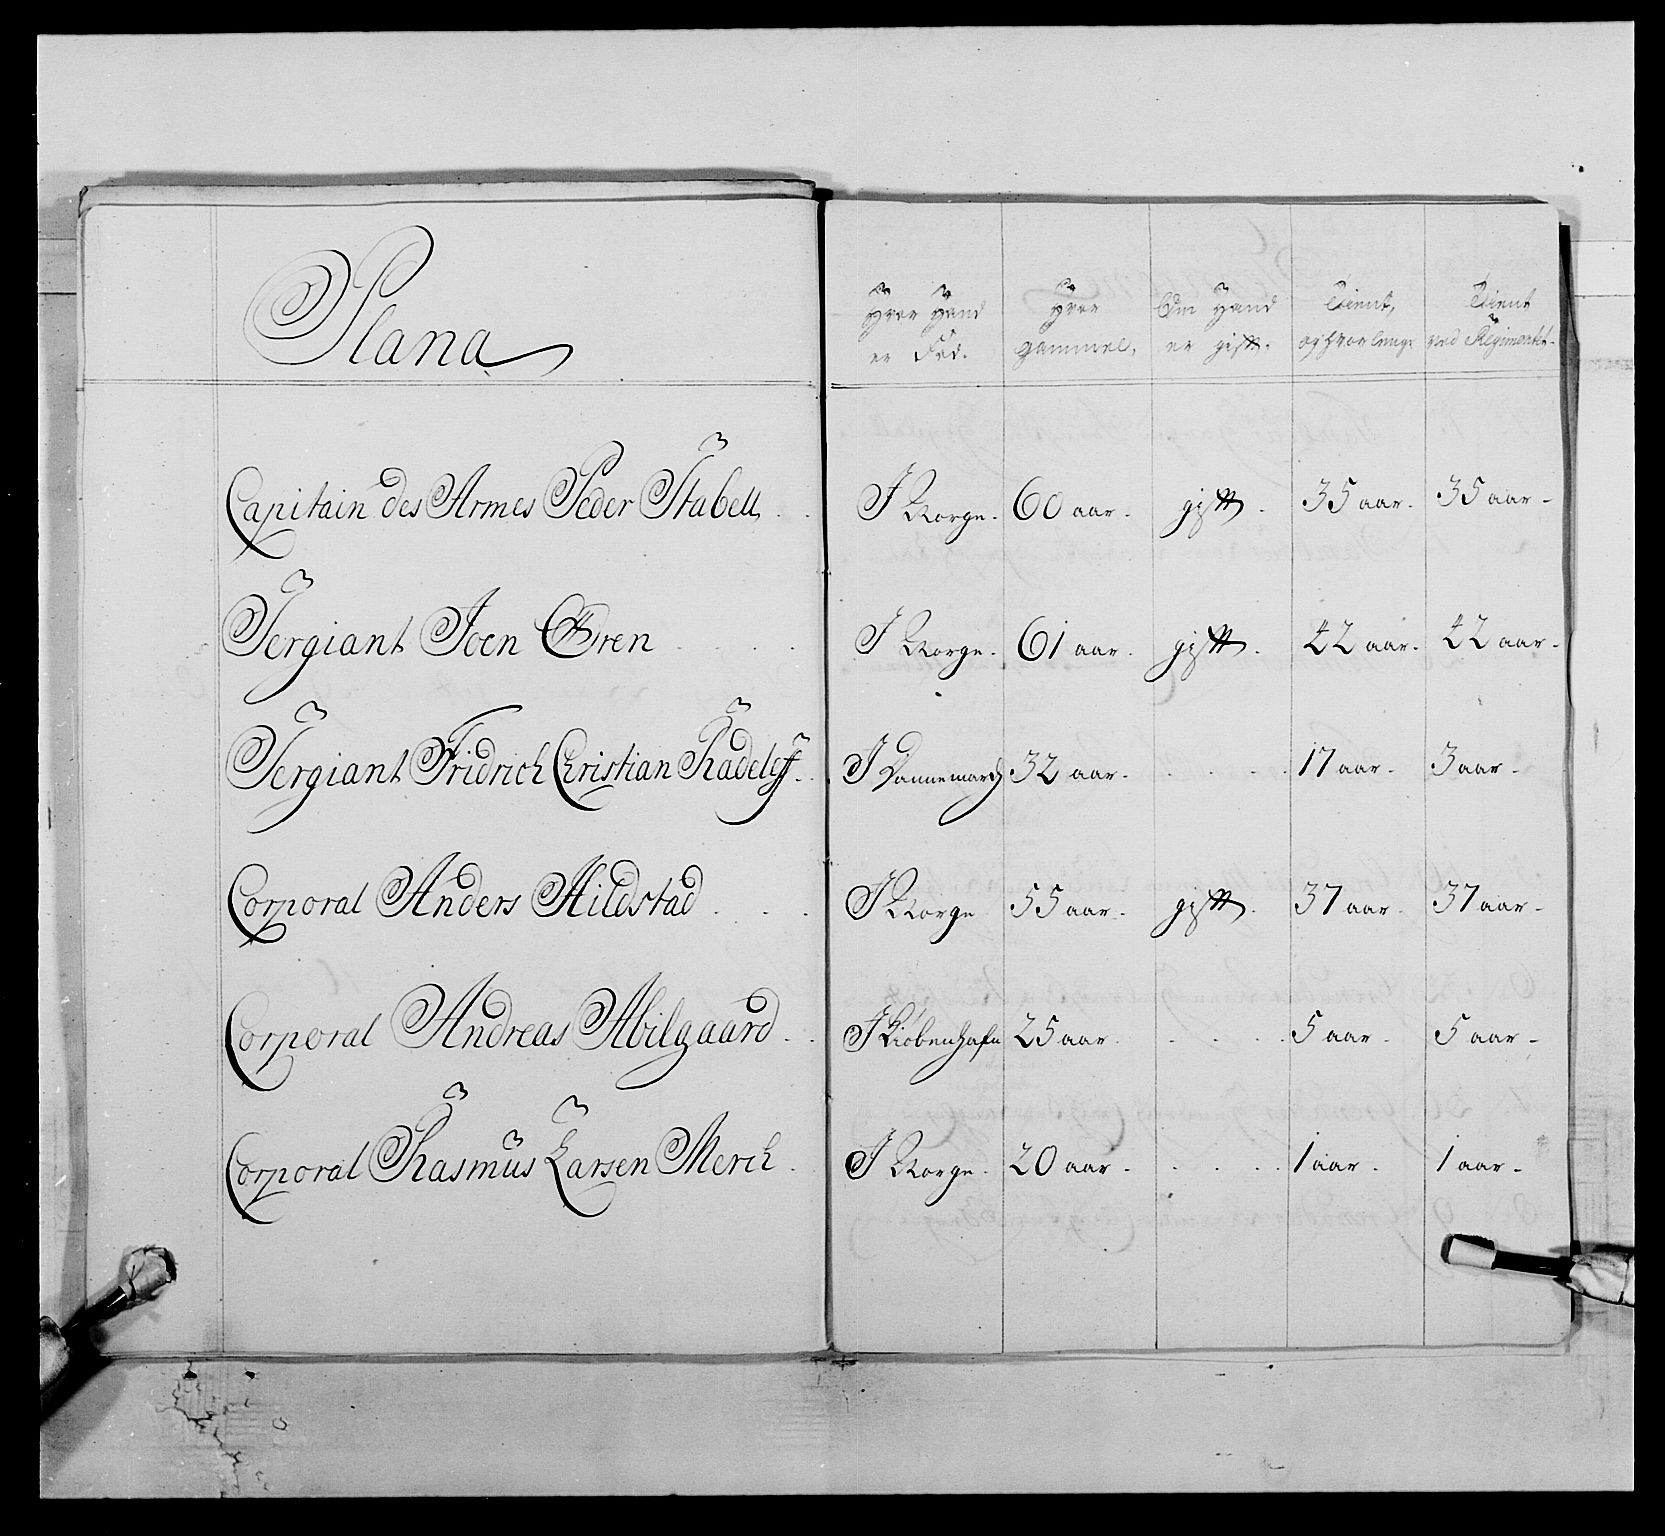 Plana
Hvor Hand er Fød.
Hvor gammel.
Om Hand er gift.
Tient, og hvor lenge
Tient ved Regimentet.
Capitain des Armes Peder Stabell . . I Norge. 60 aar. gift. 35 aar. 35 aar.
Sergiant Joen Øren . . . . I Norge. 61 aar. gift. 42 aar. 42 aar.
Sergiant Fridrich Christian Radeleff. . I Dannemarck 32 aar. . . . . 17 aar. 3 aar.
Corporal Anders Hildstad . . . I Norge 55 aar. gift. 37 aar. 37 aar.
Corporal Andreas Abilgaard . . I Kiøbenhafn 25 aar. . . . . 5 aar. 5 aar.
Corporal Rasmus Larsen Merch . . I Norge. 20 aar. . . . . 1 aar. 1 aar.